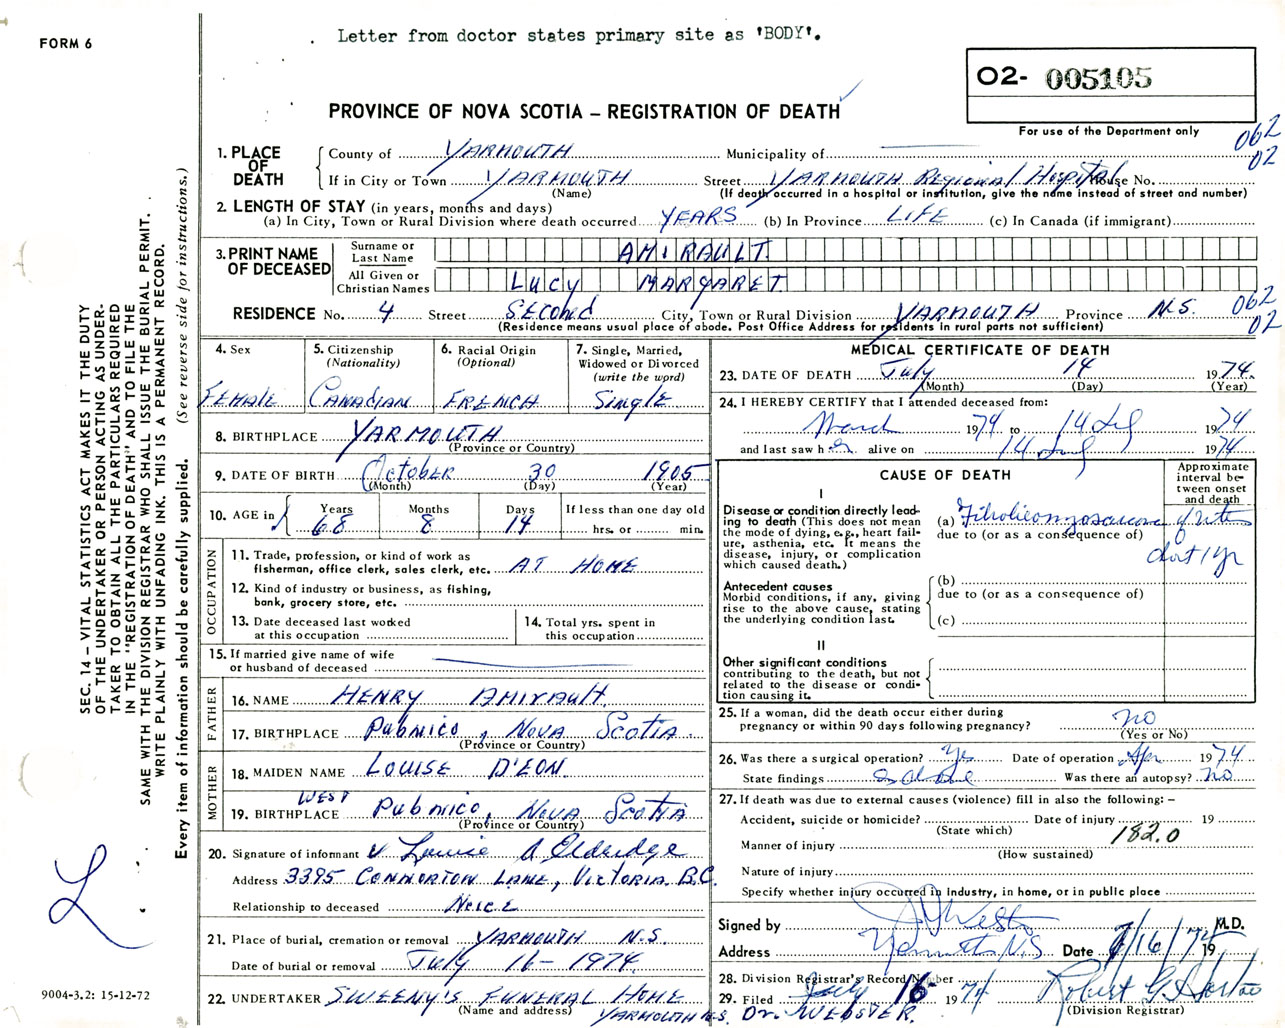 FORM 6
Letter from doctor states primary site as 'BODY'.
O2- 005105
PROVINCE OF NOVA SCOTIA – REGISTRATION OF DEATH
For use of the Department only
062
02
1. PLACE OF DEATH
County of YARMOUTH Municipality of
If in City or Town YARMOUTH Street YARMOUTH Regional Hospital House No.
(Name) (If death occurred in a hospital or institution, give the name instead of street and number)
2. LENGTH OF STAY (in years, months and days)
(a) In City, Town or Rural Division where death occurred YEARS (b) In Province LIFE (c) In Canada (if immigrant)
3. PRINT NAME OF DECEASED
Surname or Last Name AMIRAULT
All Given or Christian Names LUCY MARGARET
RESIDENCE No. 4 Street SECOND City, Town or Rural Division YARMOUTH Province N.S. 062
02
(Residence means usual place of abode. Post Office Address for residents in rural parts not sufficient)
4. Sex
Female
5. Citizenship
(Nationality)
Canadian
6. Racial Origin
(Optional)
FRENCH
7. Single, Married,
Widowed or Divorced
(write the word)
Single
8. BIRTHPLACE YARMOUTH
(Province or Country)
9. DATE OF BIRTH October 30 1905
(Month) (Day) (Year)
10. AGE in Years 68 Months 8 Days 14
If less than one day old
hrs. or min.
OCCUPATION
11. Trade, profession, or kind of work as
fisherman, office clerk, sales clerk, etc. AT HOME
12. Kind of industry or business, as fishing,
bank, grocery store, etc.
13. Date deceased last worked
at this occupation
14. Total yrs. spent in
this occupation
15. If married give name of wife
or husband of deceased
FATHER
16. NAME HENRY AMIRAULT
17. BIRTHPLACE Pubnico, Nova Scotia
(Province or Country)
MOTHER
18. MAIDEN NAME LOUISE D'EON
19. BIRTHPLACE WEST Pubnico, Nova Scotia
(Province or Country)
20. Signature of informant Louise A Elderidge
Address 3395 CONNORTON LANE, VICTORIA B.C.
Relationship to deceased Neice
21. Place of burial, cremation or removal YARMOUTH N.S.
Date of burial or removal July 16-1974
22. UNDERTAKER SWEENY'S FUNERAL HOME
(Name and address) YARMOUTH N.S.
MEDICAL CERTIFICATE OF DEATH
23. DATE OF DEATH July 14 1974
(Month) (Day) (Year)
24. I HEREBY CERTIFY that I attended deceased from:
March 1974 to 14 Jul 1974
and last saw her alive on 14 Jul 1974
CAUSE OF DEATH
Approximate
interval be-
tween onset
and death
I
Disease or condition directly lead-
ing to death (This does not mean
the mode of dying, e.g., heart fail-
ure, asthenia, etc. It means the
disease, injury, or complication
which caused death.)
(a) Fibroliomyosarcoma of Uterus
due to (or as a consequence of)
about 1 yr
Antecedent causes
Morbid conditions, if any, giving
rise to the above cause, stating
the underlying condition last.
(b)
due to (or as a consequence of)
(c)
II
Other significant conditions
contributing to the death, but not
related to the disease or condi-
tion causing it.
25. If a woman, did the death occur either during
pregnancy or within 90 days following pregnancy? no
(Yes or No)
26. Was there a surgical operation? Yes Date of operation Apr 1974
State findings as above Was there an autopsy? no
27. If death was due to external causes (violence) fill in also the following: –
Accident, suicide or homicide? Date of injury 19
(State which) 182.0
Manner of injury
(How sustained)
Nature of injury
Specify whether injury occurred in Industry, in home, or in public place
Signed by M.D.
Address Yarmouth N.S. Date 7/16/74 19
28. Division Registrar's Record Number
29. Filed July 16 1974
(Division Registrar)
Dr. WEBSTER.
SEC. 14 – VITAL STATISTICS ACT MAKES IT THE DUTY
OF THE UNDERTAKER OR PERSON ACTING AS UNDER-
TAKER TO OBTAIN ALL THE PARTICULARS REQUIRED
IN THE "REGISTRATION OF DEATH" AND TO FILE THE
SAME WITH THE DIVISION REGISTRAR WHO SHALL ISSUE THE BURIAL PERMIT.
WRITE PLAINLY WITH UNFADING INK. THIS IS A PERMANENT RECORD.
Every item of information should be carefully supplied. (See reverse side for instructions.)
L
9004-3.2: 15-12-72